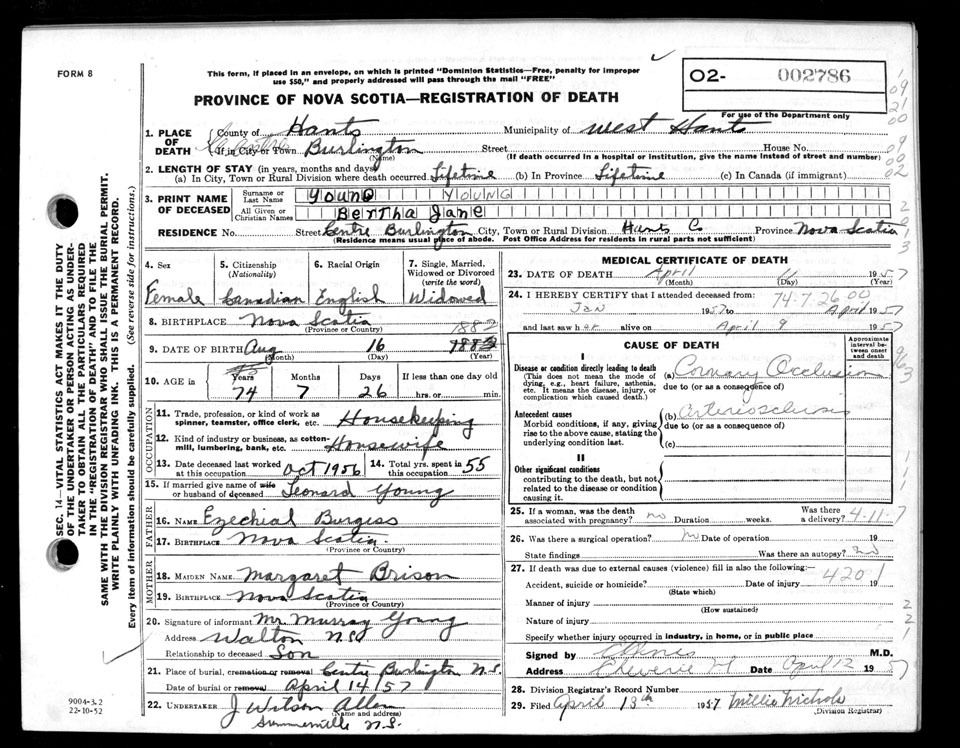 FORM 8
This form, if placed in an envelope, on which is printed "Dominion Statistics—Free, penalty for improper
use $50," and properly addressed will pass through the mail "FREE"
O2- 002786
For use of the Department only
PROVINCE OF NOVA SCOTIA—REGISTRATION OF DEATH
1. PLACE OF DEATH
County of Hants Municipality of West Hants
If in City or Town Burlington Street House No.
(Name) (If death occurred in a hospital or institution, give the name instead of street and number)
2. LENGTH OF STAY (in years, months and days)
(a) In City, Town or Rural Division where death occurred Lifetime (b) In Province Lifetime (c) In Canada (if immigrant)
3. PRINT NAME OF DECEASED
Surname or Last Name Young YOUNG
All Given or Christian Names Bertha Jane
RESIDENCE No. Street Centre Burlington City, Town or Rural Division Hants Co Province Nova Scotia
(Residence means usual place of abode. Post Office Address for residents in rural parts not sufficient)
4. Sex
Female
5. Citizenship (Nationality)
Canadian
6. Racial Origin
English
7. Single, Married, Widowed or Divorced (write the word)
Widowed
8. BIRTHPLACE Nova Scotia
(Province or Country)
1882
9. DATE OF BIRTH Aug 16 1882
(Month) (Day) (Year)
10. AGE in Years Months Days If less than one day old
74 7 26 hrs. or min.
OCCUPATION
11. Trade, profession, or kind of work as
spinner, teamster, office clerk, etc. Housekeeping
12. Kind of industry or business, as cotton-
mill, lumbering, bank, etc. Housewife
13. Date deceased last worked at this occupation Oct 1956 14. Total yrs. spent in this occupation 55
15. If married give name of wife
or husband of deceased Leonard Young
FATHER
16. NAME Ezechial Burgess
17. BIRTHPLACE Nova Scotia
(Province or Country)
MOTHER
18. MAIDEN NAME Margaret Brison
19. BIRTHPLACE Nova Scotia
(Province or Country)
20. Signature of informant Mr. Murray Young
Address Walton N.S.
Relationship to deceased Son
21. Place of burial, cremation or removal Centre Burlington N.S.
Date of burial or removal April 14 57
22. UNDERTAKER J Wilson Allen
(Name and address)
Summerville N.S.
MEDICAL CERTIFICATE OF DEATH
23. DATE OF DEATH April 1957
(Month) (Day) (Year)
74-7-26 00
24. I HEREBY CERTIFY that I attended deceased from:
Jan 1957 to April 1957
and last saw her alive on April 9 1957
CAUSE OF DEATH
Approximate interval between onset and death
I
Disease or condition directly leading to death
(This does not mean the mode of
dying, e.g., heart failure, asthenia,
etc. It means the disease, injury, or
complication which caused death.)
(a) Coronary Occlusion
due to (or as a consequence of)
Antecedent causes
Morbid conditions, if any, giving
rise to the above cause, stating the
underlying condition last.
(b) arteriosclerosis
due to (or as a consequence of)
(c)
II
Other significant conditions
contributing to the death, but not
related to the disease or condition
causing it.
25. If a woman, was the death
associated with pregnancy? no Duration weeks. Was there a delivery? 4-11-7
26. Was there a surgical operation? no Date of operation 19
State findings Was there an autopsy? no
27. If death was due to external causes (violence) fill in also the following:
Accident, suicide or homicide? Date of injury 19
420 1
(State which)
Manner of injury
(How sustained)
Nature of injury
Specify whether injury occurred in industry, in home, or in public place
Signed by M.D.
Address Date April 12 1957
28. Division Registrar's Record Number
29. Filed April 13th 1957 Millie Nichols
(Division Registrar)
SEC. 14—VITAL STATISTICS ACT MAKES IT THE DUTY
OF THE UNDERTAKER OR PERSON ACTING AS UNDER-
TAKER TO OBTAIN ALL THE PARTICULARS REQUIRED
IN THE "REGISTRATION OF DEATH" AND TO FILE THE
SAME WITH THE DIVISION REGISTRAR WHO SHALL ISSUE THE BURIAL PERMIT.
WRITE PLAINLY WITH UNFADING INK. THIS IS A PERMANENT RECORD.
Every item of information should be carefully supplied. (See reverse side for instructions.)
9004-3.2
22-10-52